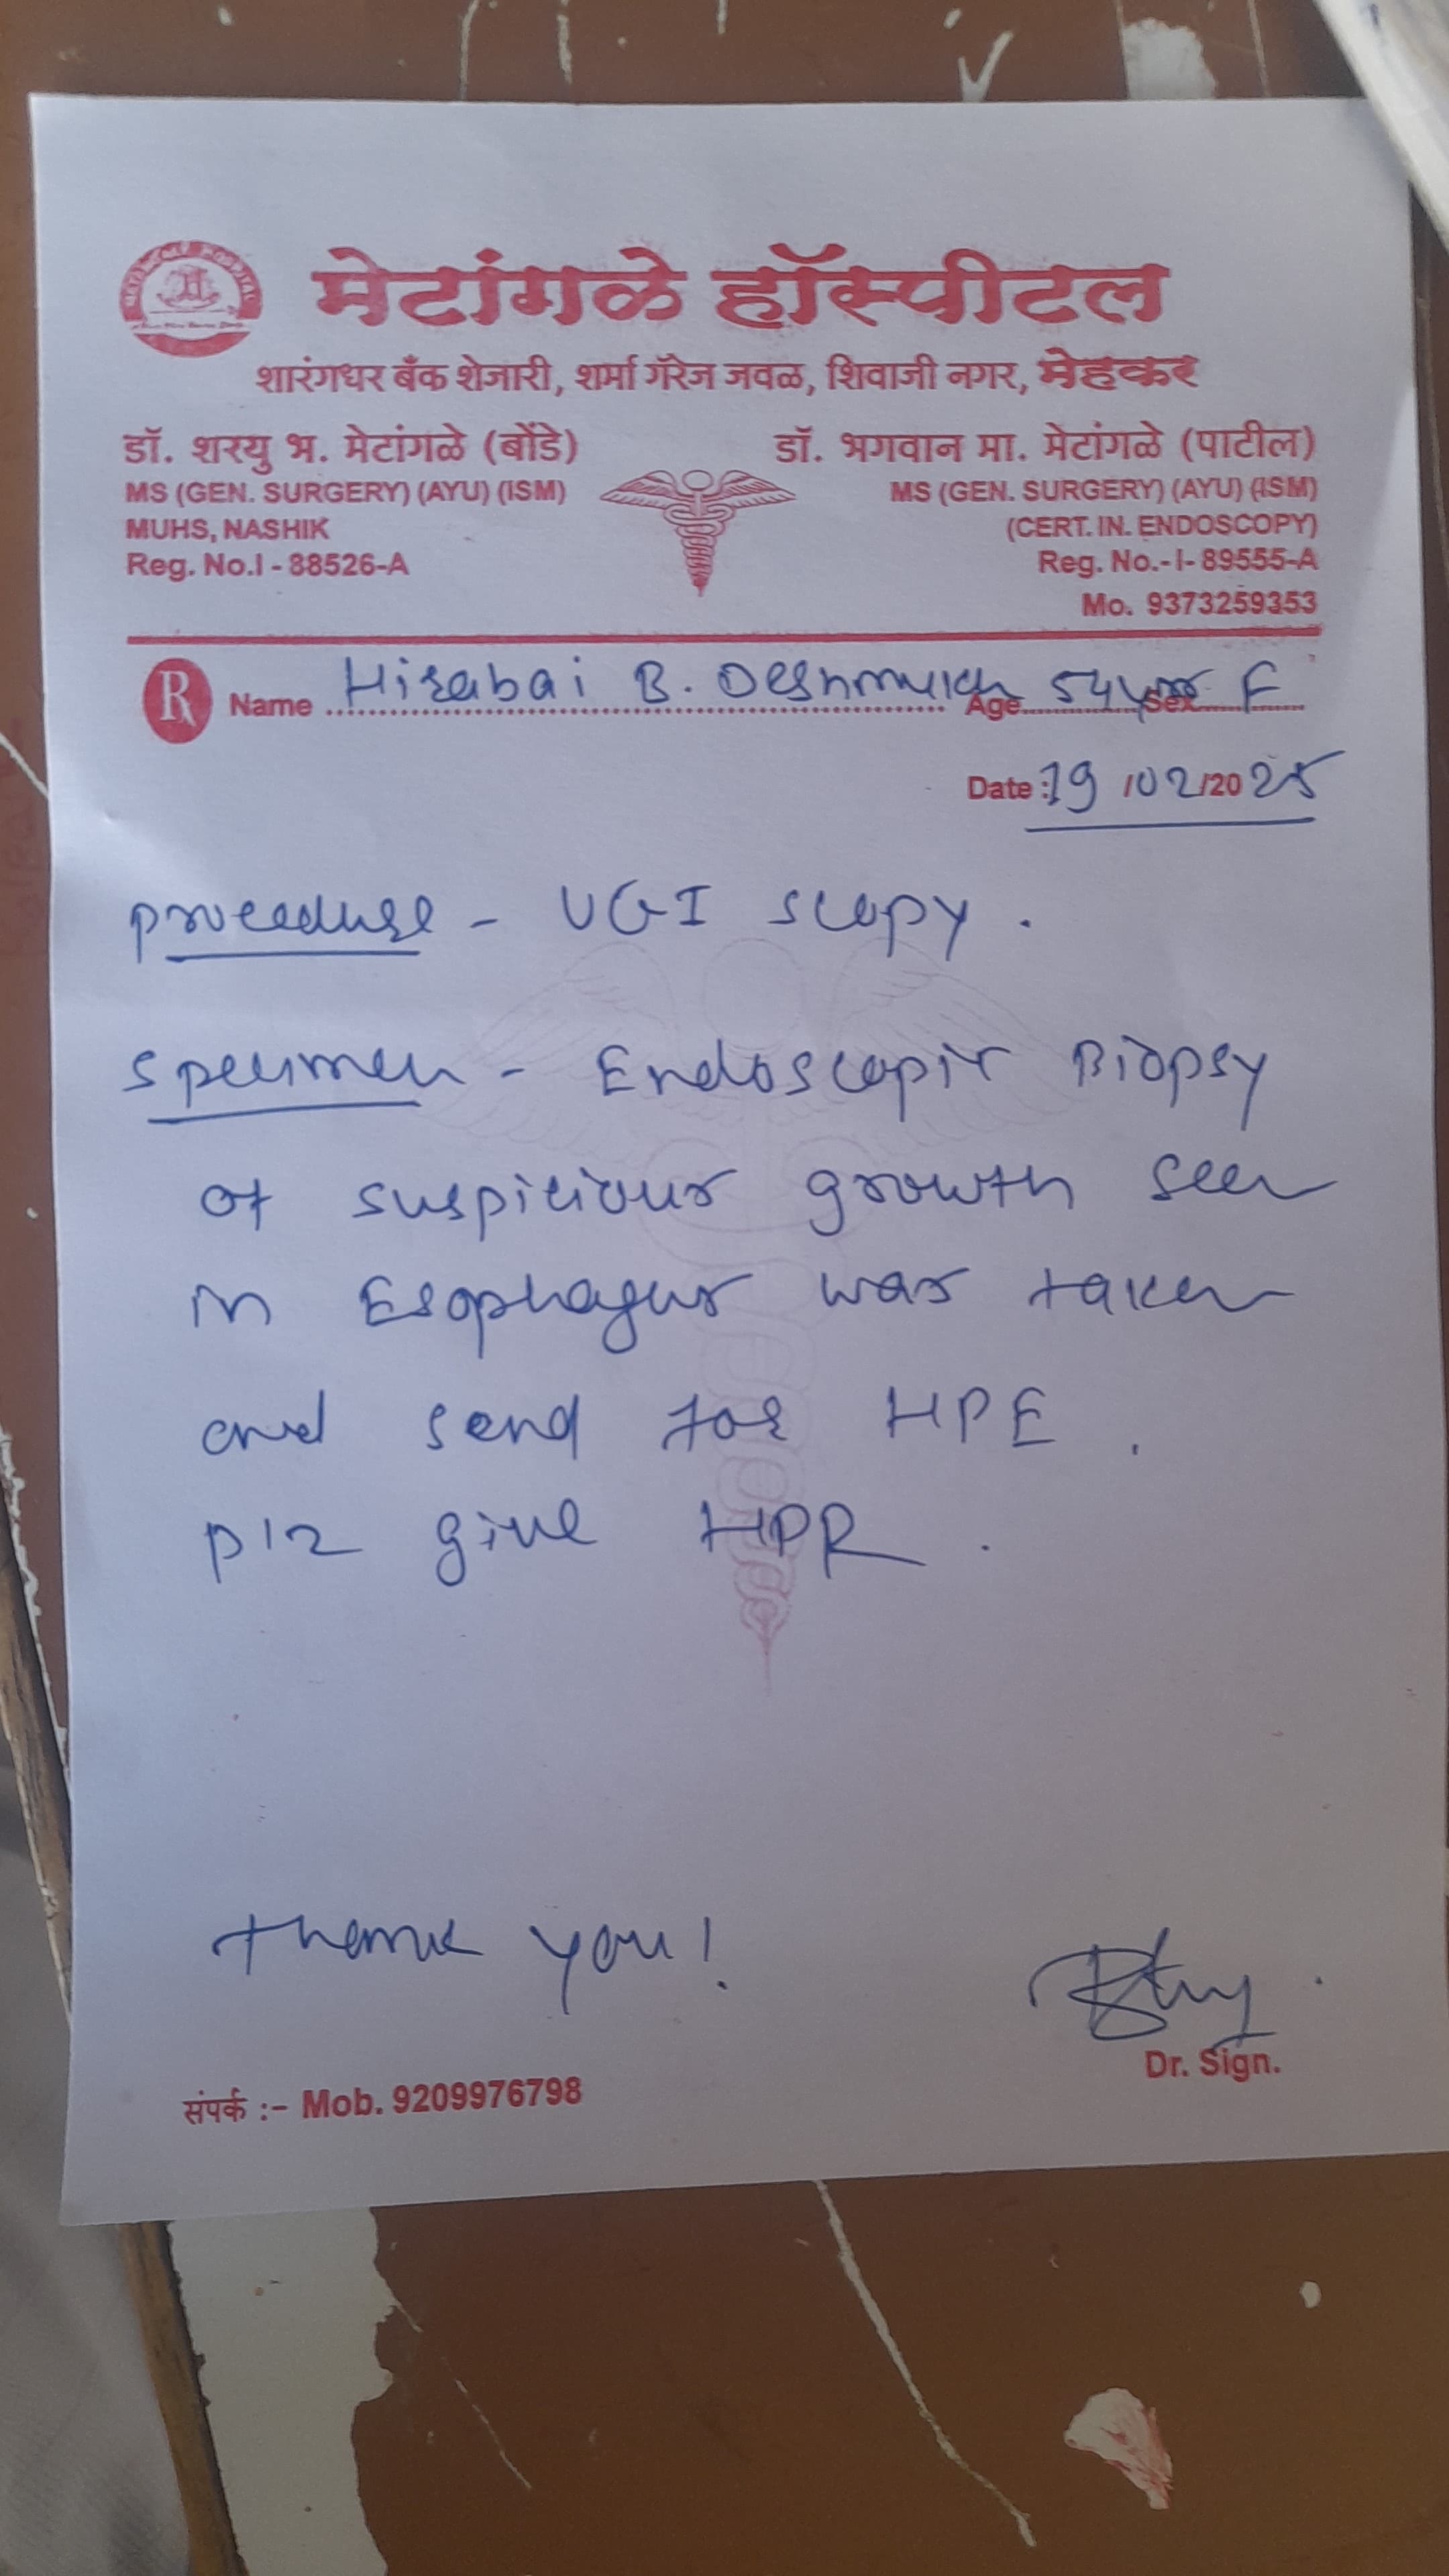 मेटांगळे हॉस्पीटल
शारंगधर बँक शेजारी, शर्मा गॅरेज जवळ, शिवाजी नगर, मेहकर
डॉ. शरयु भ. मेटांगळे (बोंडे)
MS (GEN. SURGERY) (AYU) (ISM)
MUHS, NASHIK
Reg. No.I - 88526-A
डॉ. भगवान मा. मेटांगळे (पाटील)
MS (GEN. SURGERY) (AYU) (ISM)
(CERT. IN. ENDOSCOPY)
Reg. No.-I- 89555-A
Mo. 9373259353
R Name Hirabai B. Deshmukh Age 54 yrs Sex F
Date :19/02/2025
procedure - UGI scopy .
specimen - Endoscopic Biopsy
of suspicious growth seen
in Esophagus was taken
and send for HPE .
plz give HPR .
Thank you!
Dr. Sign.
संपर्क :- Mob. 9209976798